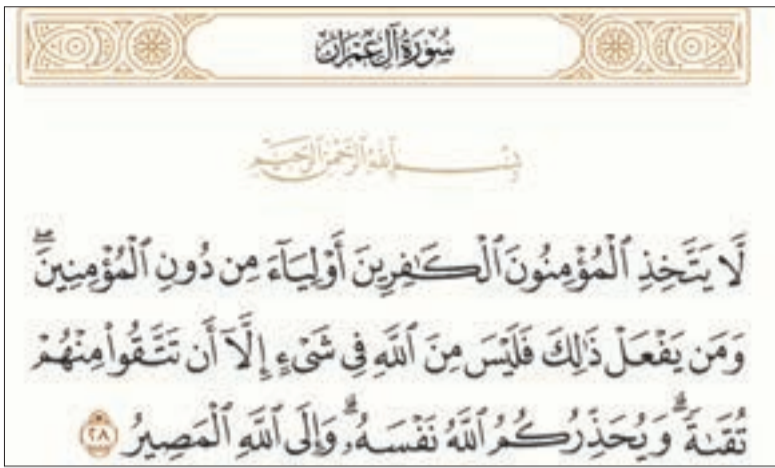 سُورَةُ آلِ عِمْرَانَ
بِسْمِ ٱللَّهِ ٱلرَّحْمَٰنِ ٱلرَّحِيمِ
لَّا يَتَّخِذِ ٱلْمُؤْمِنُونَ ٱلْكَـٰفِرِينَ أَوْلِيَآءَ مِن دُونِ ٱلْمُؤْمِنِينَ ۖ
وَمَن يَفْعَلْ ذَٰلِكَ فَلَيْسَ مِنَ ٱللَّهِ فِى شَىْءٍ إِلَّآ أَن تَتَّقُوا۟ مِنْهُمْ
تُقَىٰةً ۗ وَيُحَذِّرُكُمُ ٱللَّهُ نَفْسَهُۥ ۗ وَإِلَى ٱللَّهِ ٱلْمَصِيرُ ٢٨